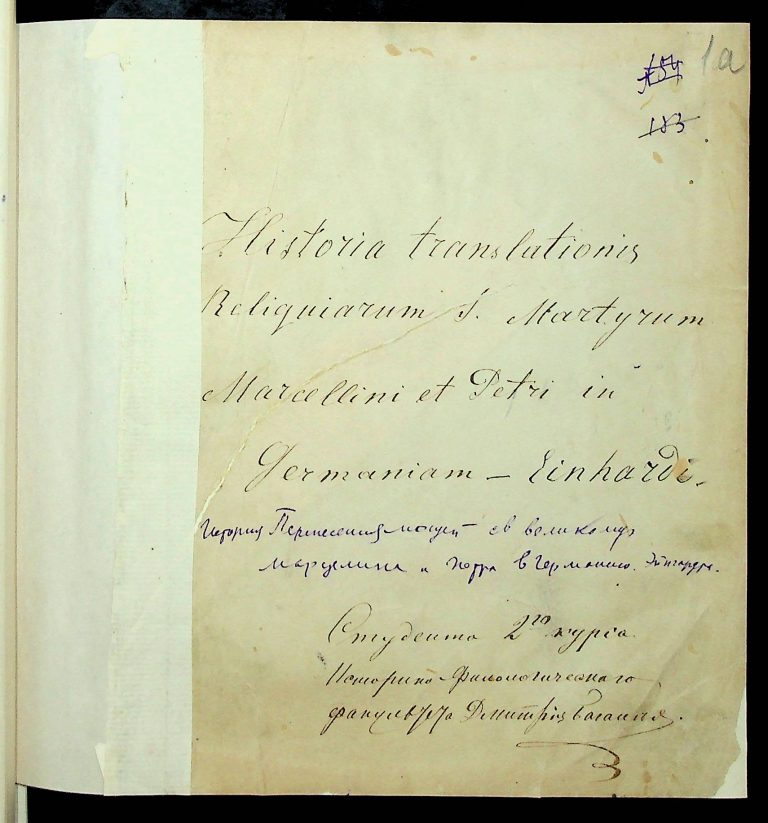 1а
154
183
Historia translationis
Reliquiarum S. Martyrum
Marcellini et Petri in
Germaniam – Einhardi.
История Перенесения мощей св великому
марцелина и петра в Германию. Эйнгарда.
Студента 2го курса
Историко-Филологическаго
факультета Дмитрія Багалѣя.